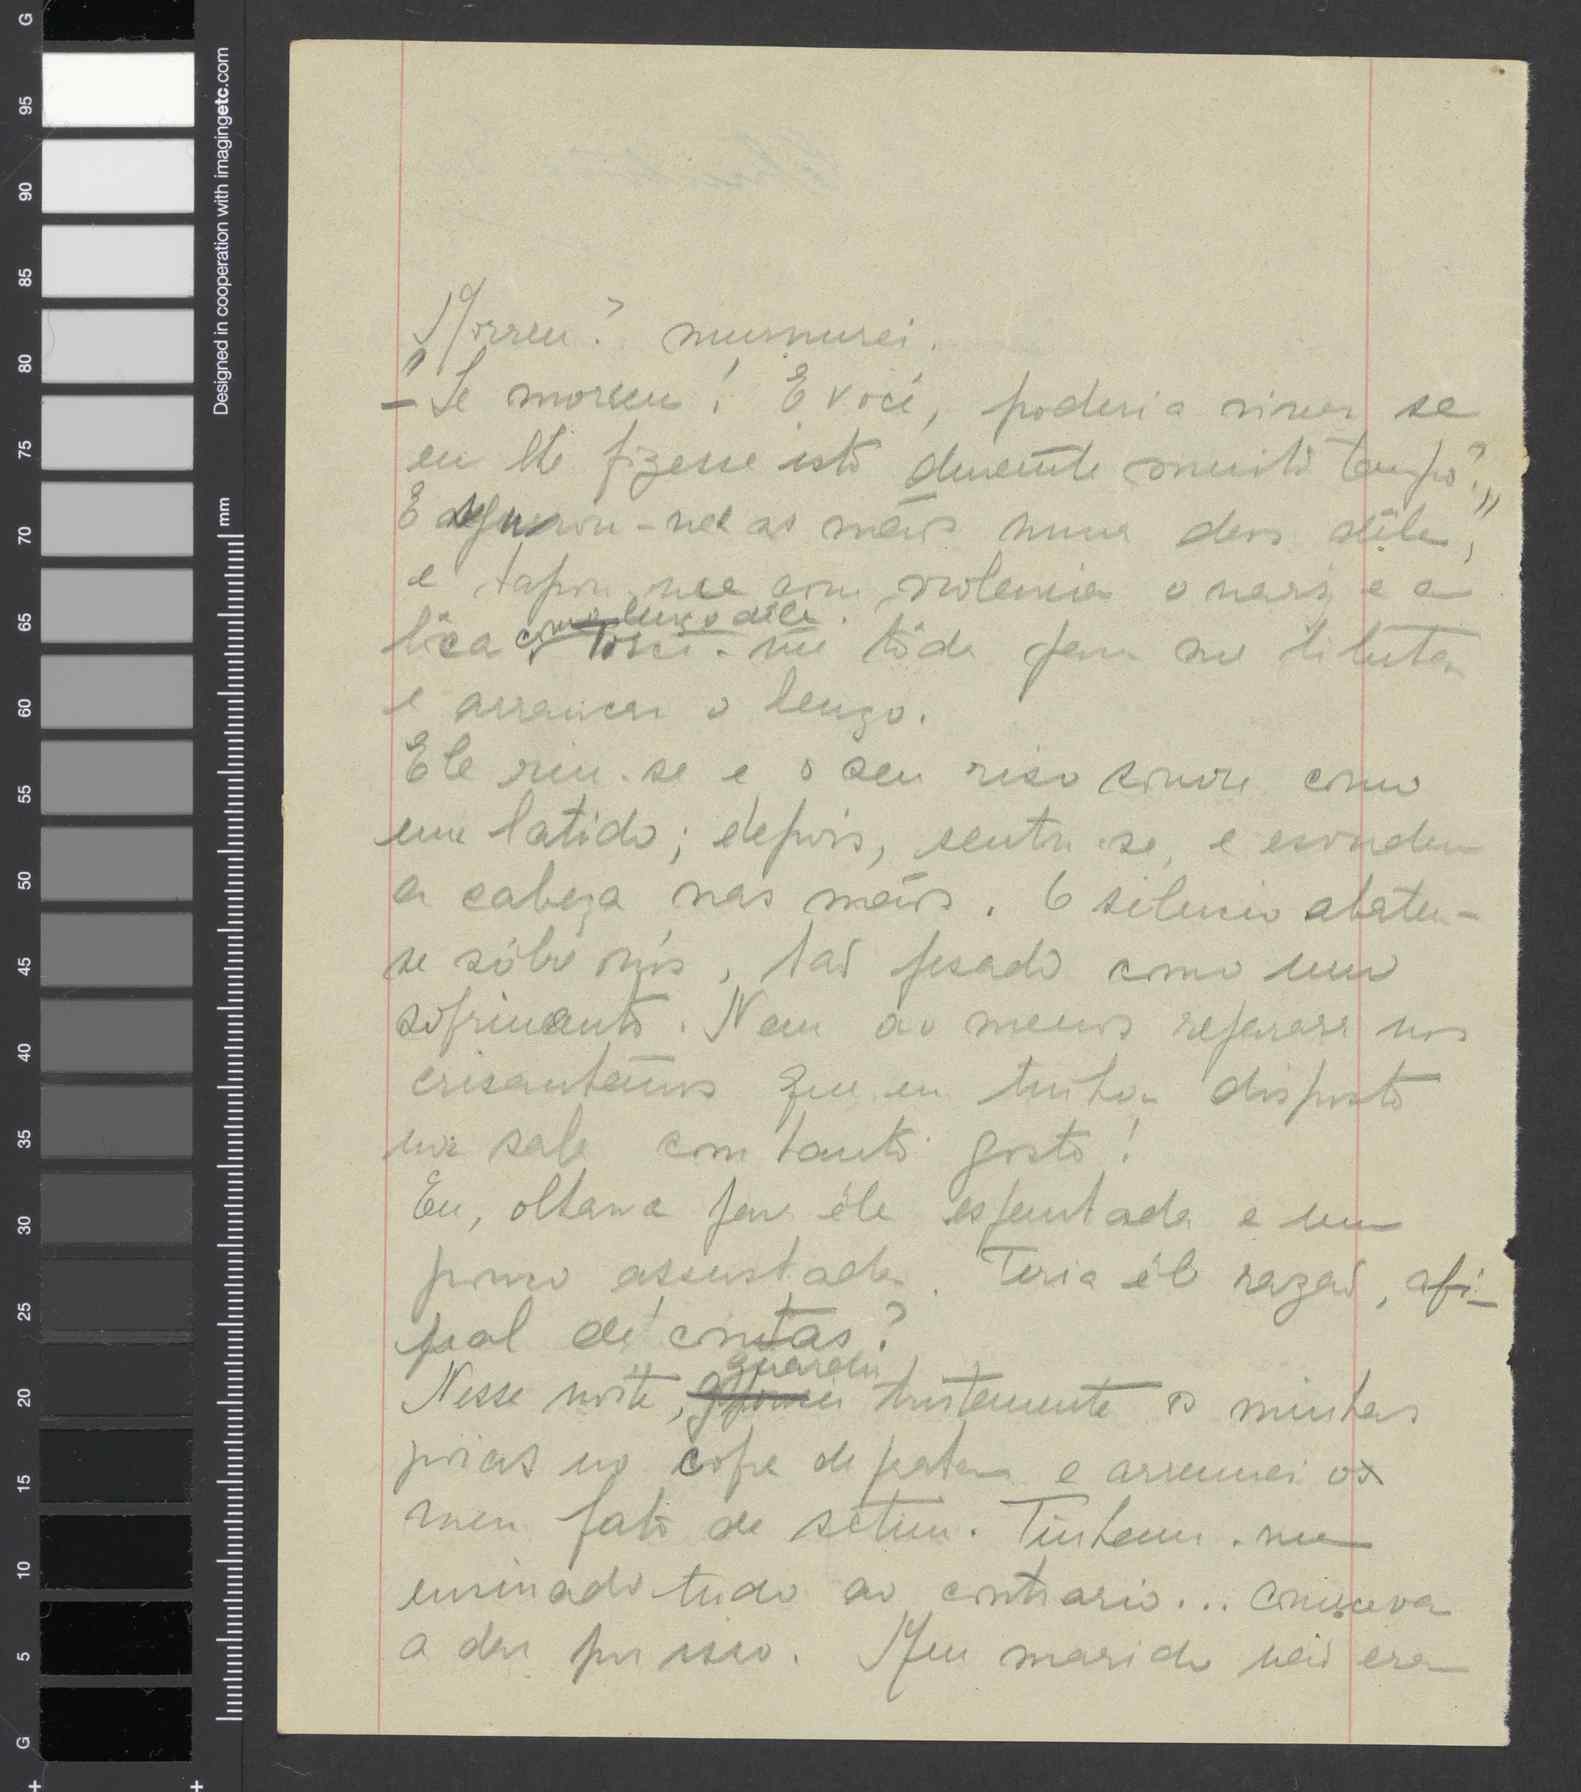 G
95
90
85
80
75
70
65
60
55
50
45
40
35
30
25
20
15
10
5
G
Designed in cooperation with imagingetc.com
mm
Morreu? murmurei.
"- Se morreu! E você, poderia viver se
eu lhe fizesse isto durante muito tempo?"
E agarrou-me as mãos numa das dêle,
e tapou-me com violencia o nariz e a
bôca com o lenço dêle.
Torci-me tôda para me libertar
e arrancar o lenço.
Ele riu-se e o seu riso sonore como
um latido; depois, sentou-se, e escondeu
a cabeça nas mãos. O silencio abateu-
se sôbre nós, tão pesado como um
sofrimento. Nem ao menos reparara nos
crisantemos que eu tinha disposto
na sala com tanto gosto!
Eu, olhava para êle espantada e um
pouco assustada. Teria êle razão, afi-
nal de contas?
Nesse noite, guardei tristemente as minhas
joias no cofre de prata e arrumei o
meu fato de setim. Tinham-me
ensinado tudo ao contrario... Começava
a dar por isso. Meu marido não era